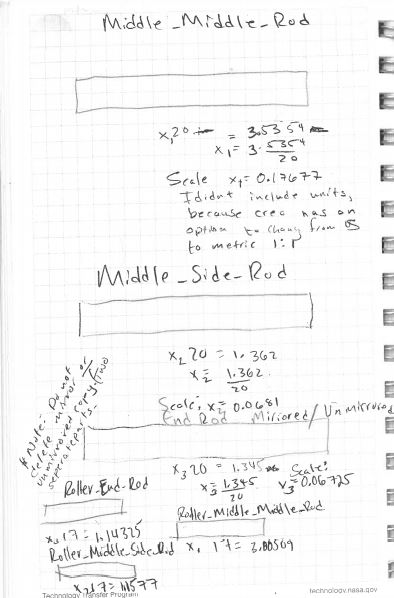 Middle_Middle_Rod
x₁20 = 3.5354
x₁ = 3.5354
20
Scale x₁ = 0.17677
I didnt include units,
because creo has an
option to chang from
to metric 1:1
Middle_Side_Rod
x₂20 = 1.362
x₂ = 1.362
20
Scale: x₂ = 0.0681
End Rod - Mirrored/Unmirrored
*Note: Do not
delete mirror or
unmirrored copy. (Two
seperate parts.
x₃20 = 1.345
Scale:
x₃ = 1.345
20
x₃ = 0.06725
Roller_End_Rod
x₃17 = 1.14325
Roller_Middle_Middle_Rod
x₁17 = 3.00509
Roller_Middle_Side_Rod
x₂17 = 1.1577
Technology Transfer Program
technology.nasa.gov